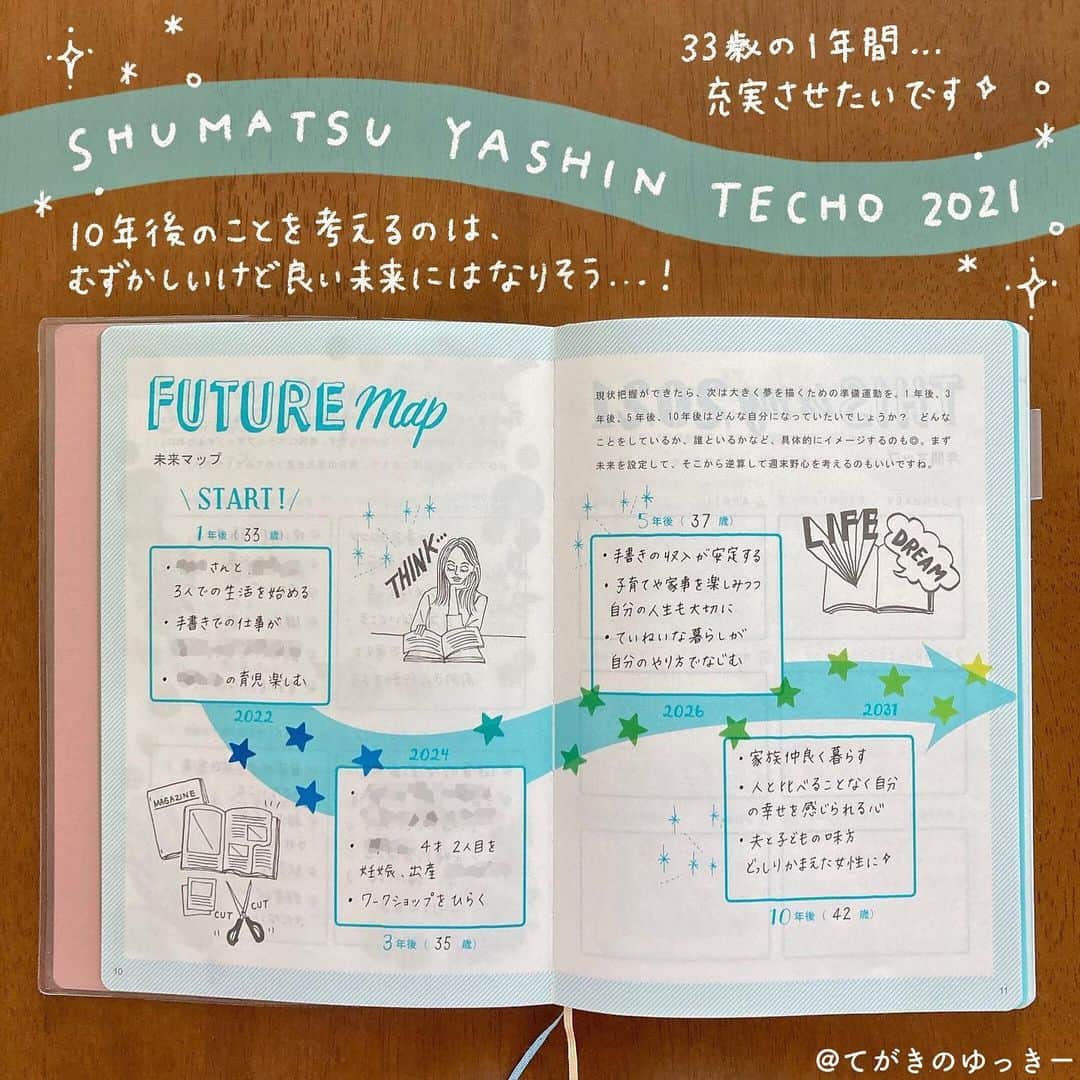 33歳の1年間...
充実させたいです
SHUMATSU YASHIN TECHO 2021
10年後のことを考えるのは、
むずかしいけど良い未来にはなりそう...!
FUTURE Map
未来マップ
\ START! /
1年後(33歳)
・さんと、
3人での生活を始める
・手書きでの仕事が
・の育児楽しむ
2022
THINK...
MAGAZINE
CUT
CUT
2024
・
・4才 2人目を
妊娠、出産
・ワークショップをひらく
3年後(35歳)
10
現状把握ができたら、次は大きく夢を描くための準備運動を、1年後、3
年後、5年後、10年後はどんな自分になっていたいでしょうか? どんな
ことをしているか、誰といるかなど、具体的にイメージするのも◎。まず
未来を設定して、そこから逆算して週末野心を考えるのもいいですね。
5年後(37歳)
・手書きの収入が安定する
・子育てや家事を楽しみつつ
自分の人生も大切に
・ていねいな暮らしが
自分のやり方でなじむ
LIFE
DREAM
2026
2031
・家族仲良く暮らす
・人と比べることなく自分
の幸せを感じられる心
・夫と子どもの味方
どっしりかまえた女性に
10年後(42歳)
11
@てがきのゆっきー